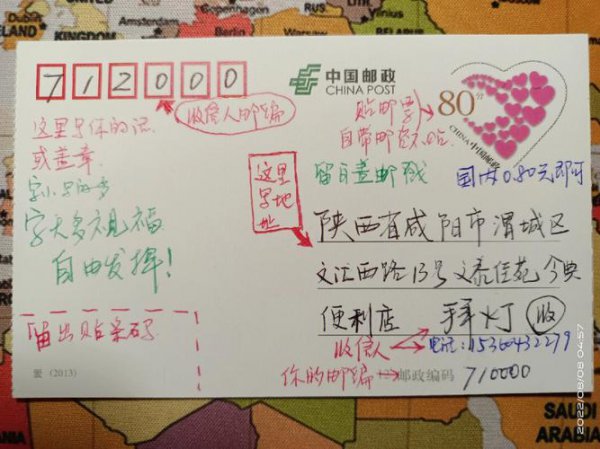 Dublin
KINGDOM
Amsterdam
Berlin
712000
中国邮政
CHINA POST
80分
CHINA 中国邮政
收信人邮编
贴邮票
自带邮资不贴
这里写你的话
或盖章
字小写的多
字大多祝福
自由发挥!
留白盖邮戳
国内0.80元即可
这里写地址
陕西省咸阳市渭城区
文汇西路13号文泰佳苑今典
便利店 拜灯 收
收信人
电话:
留出贴条码
你的邮编
邮政编码 710000
(2013)
SAUDI
ARABIA
2022/08/08 04:57